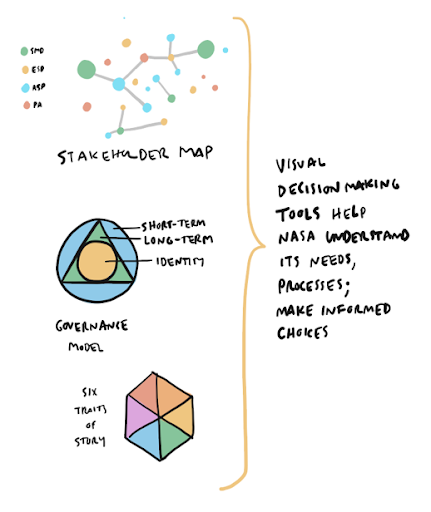 SMD
ESD
ASP
PA
STAKEHOLDER MAP
SHORT-TERM
LONG-TERM
IDENTITY
GOVERNANCE
MODEL
SIX
TRAITS
OF
STORY
VISUAL
DECISION MAKING
TOOLS HELP
NASA UNDERSTAND
ITS NEEDS,
PROCESSES;
MAKE INFORMED
CHOICES